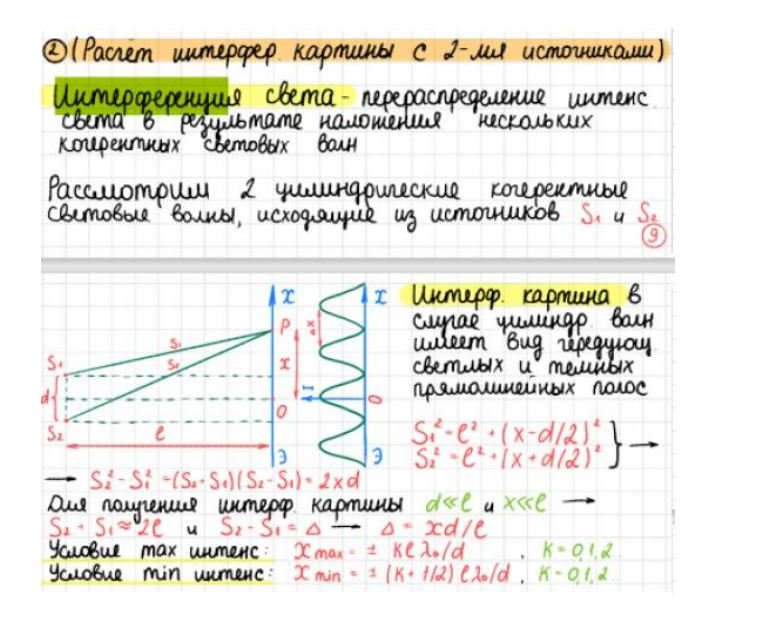 ② (Расчёт интерфер. картины с 2-мя источниками)
Интерференция света - перераспределение интенс.
света в результате наложения нескольких
когерентных световых волн
Рассмотрим 2 цилиндрические когерентные
световые волны, исходящие из источников S₁ и S₂
9
Интерф. картина в
случае цилиндр. волн
имеет вид чередующ.
светлых и темных
прямолинейных полос
x
P
S₁
S₂
x
S₁
d
O
S₂
l
Э
x
Δx
I
O
Э
S₁² = l² + (x-d/2)²
S₂² = l² + (x+d/2)² } →
→ S₂² - S₁² = (S₂+S₁)(S₂-S₁) = 2xd
Для получения интерф. картины d<<l и x<<l →
S₂ + S₁ ≈ 2l и S₂ - S₁ = Δ → Δ = xd/l
Условие max интенс: x max = ± klλ₀/d , k = 0,1,2
Условие min интенс: x min = ± (k + 1/2) lλ₀/d , k = 0,1,2